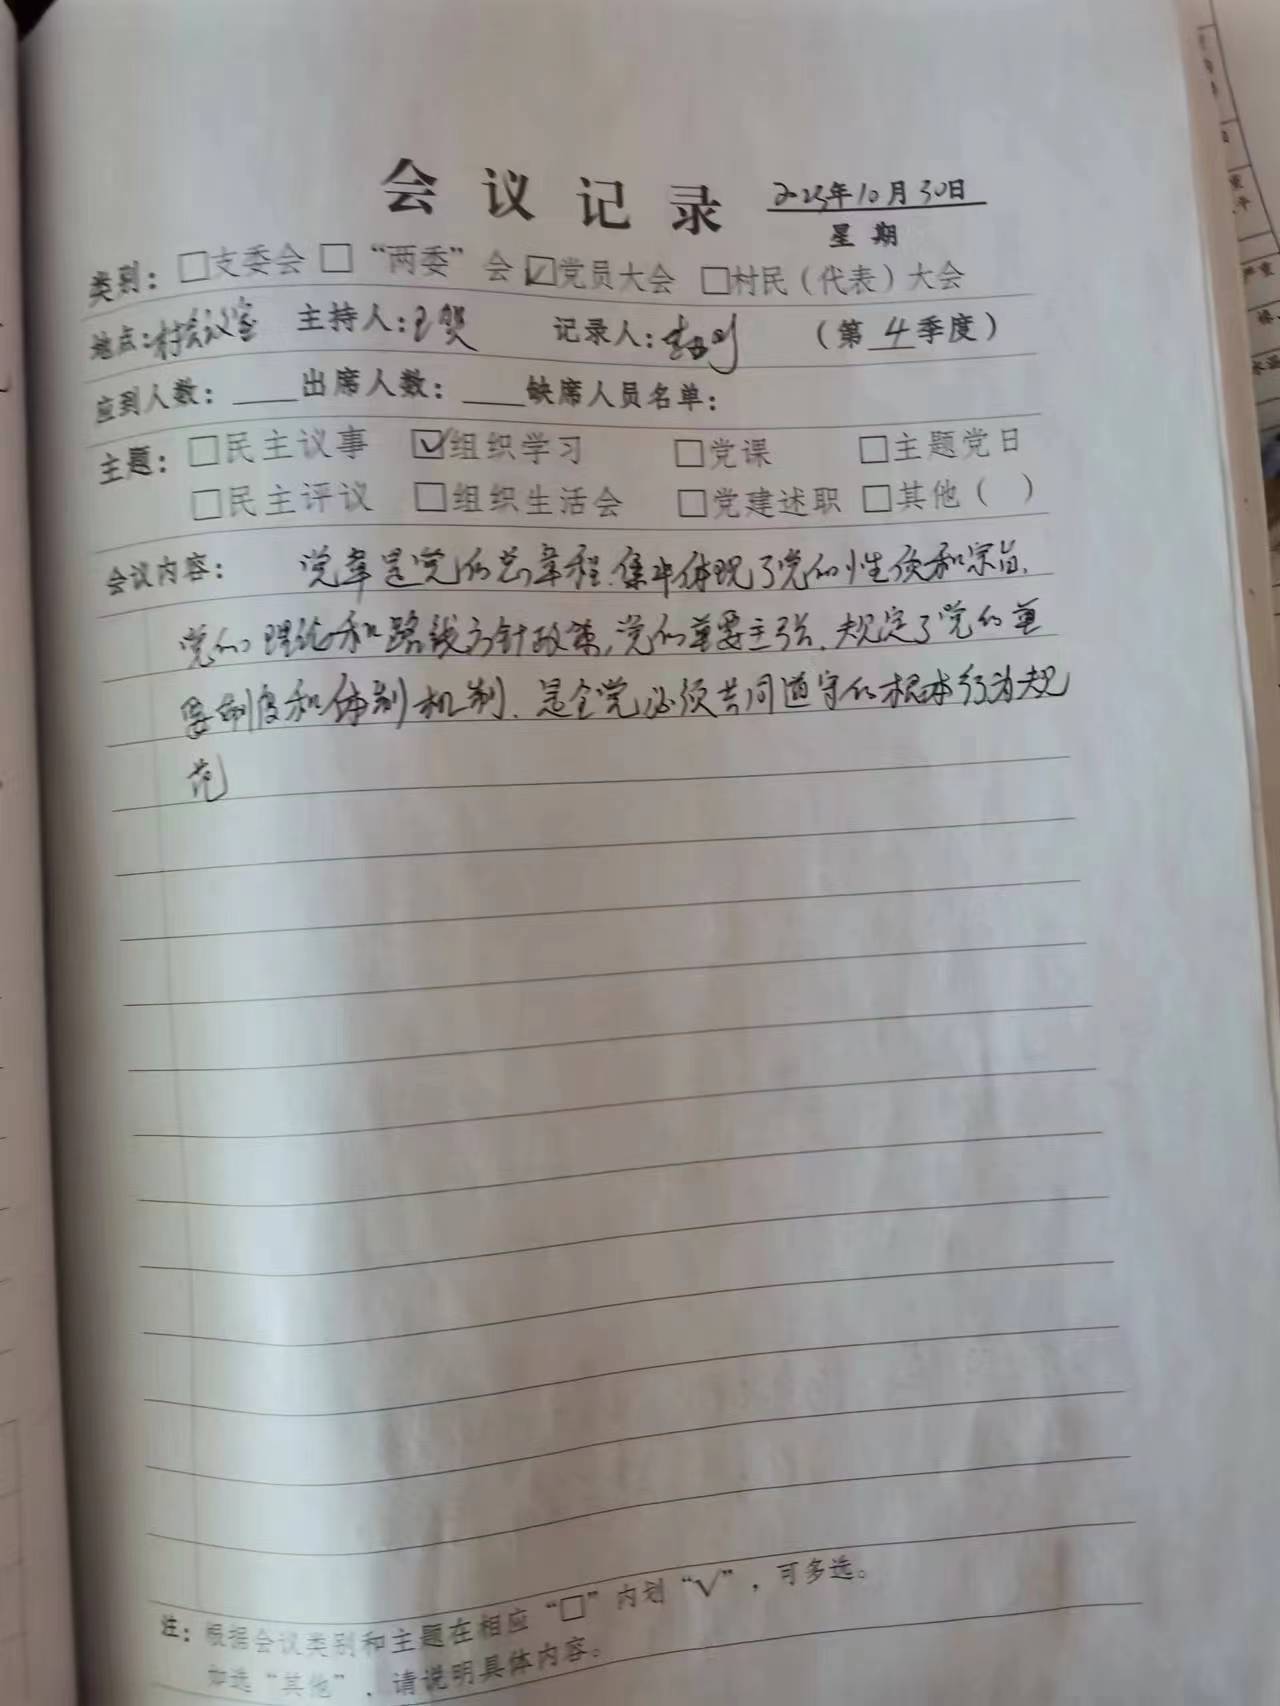 会议记录 2023年10月30日
星期
类别：□支委会 □“两委”会 ☑党员大会 □村民（代表）大会
地点：村会议室 主持人：王贺 记录人： （第 4 季度）
应到人数：____出席人数：____缺席人员名单：
主题：□民主议事 ☑组织学习 □党课 □主题党日
□民主评议 □组织生活会 □党建述职 □其他（ ）
会议内容： 党章是党的总章程.集中体现了党的性质和宗旨.
党的理论和路线方针政策,党的重要主张.规定了党的重
要制度和体制机制.是全党必须共同遵守的根本行为规
范
注：根据会议类别和主题在相应“□”内划“√”，可多选。
如选“其他”，请说明具体内容。